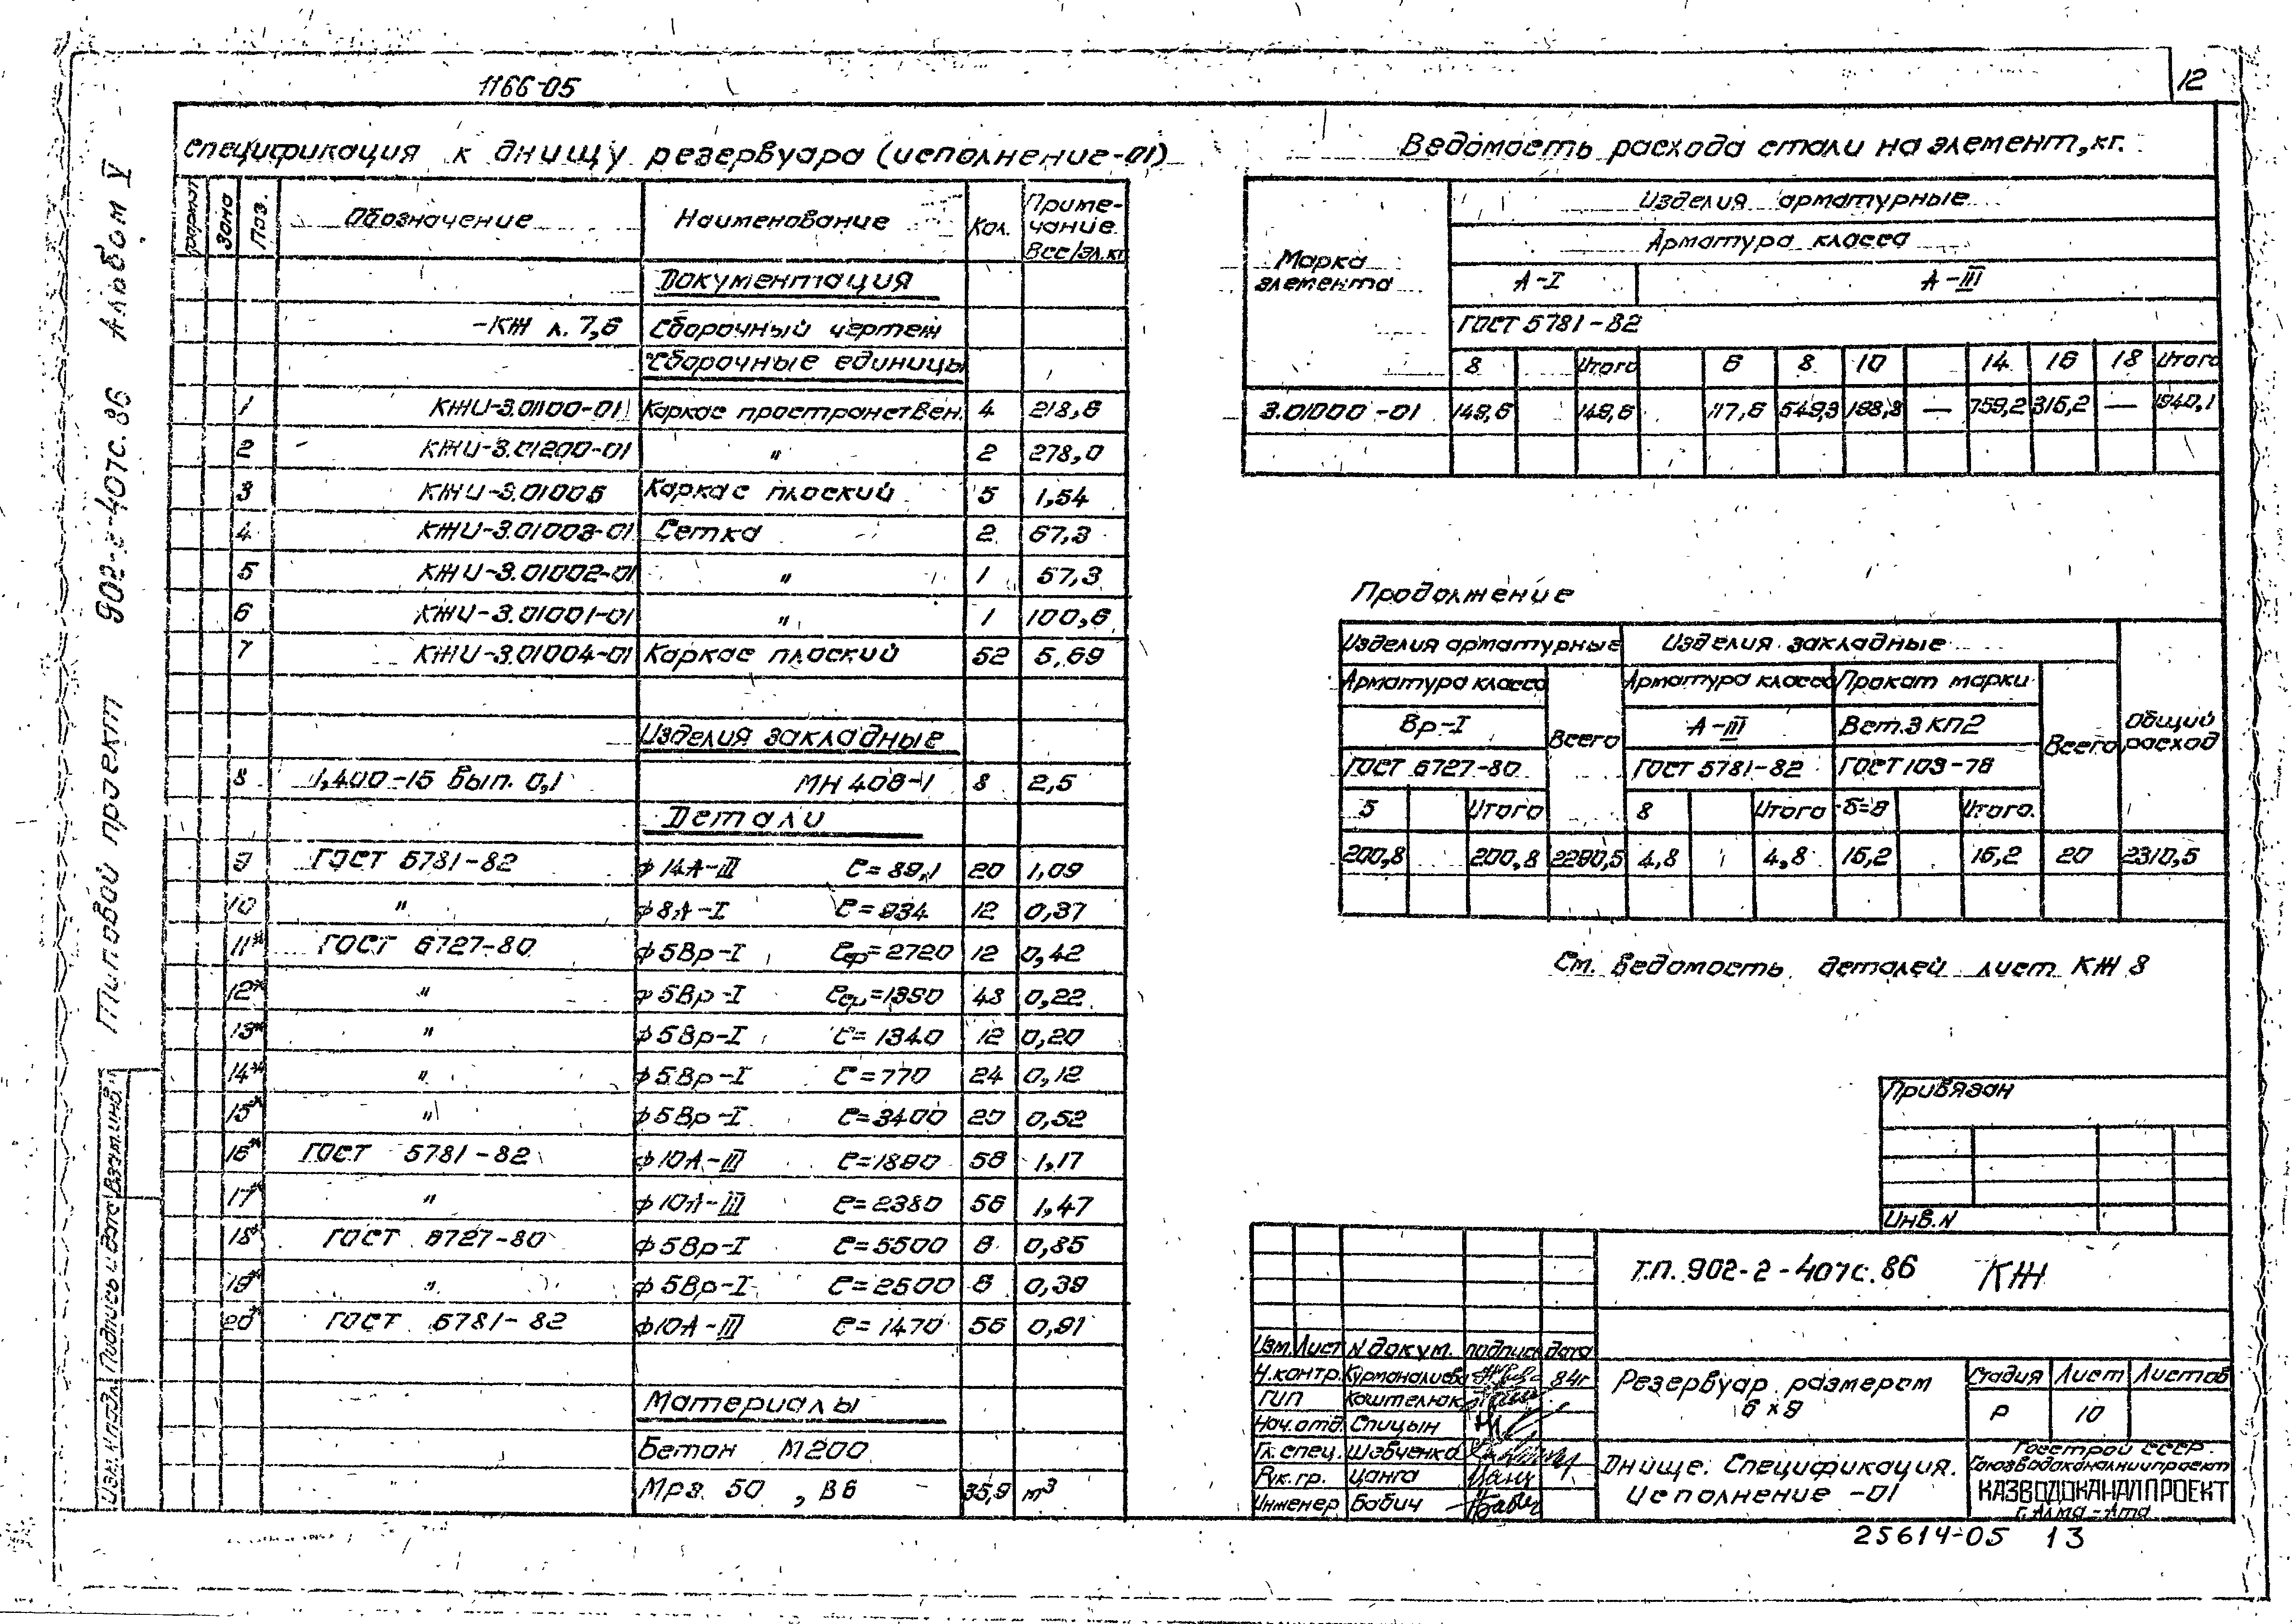 1166-05
12
Типовой проект 902-2-407с.86 Альбом V
Спецификация к днищу резервуара (исполнение-01)
Формат Зона Поз. Обозначение Наименование Кол. Приме-чание Вес/эл.кг
Документация
-КЖ л. 7,6 Сборочный чертеж
Сборочные единицы
1 КЖИ-3.01100-01 Каркас пространствен. 4 218,6
2 КЖИ-3.01200-01 " 2 278,0
3 КЖИ-3.01005 Каркас плоский 5 1,54
4 КЖИ-3.01003-01 Сетка 2 67,3
5 КЖИ-3.01002-01 " 1 57,3
6 КЖИ-3.01001-01 " 1 100,6
7 КЖИ-3.01004-01 Каркас плоский 52 5,69
Изделия закладные
8 1,400-15 Вып. 0,1 МН 406-1 8 2,5
Детали
9 ГОСТ 5781-82 ф14А-III ℓ=89,1 20 1,09
10 " ф8А-I ℓ=934 12 0,37
11* ГОСТ 6727-80 ф5Вр-I ℓср=2720 12 0,42
12* " ф5Вр-I ℓср=1390 48 0,22
13* " ф5Вр-I ℓ=1340 12 0,20
14* " ф5Вр-I ℓ=770 24 0,12
15* " ф5Вр-I ℓ=3400 20 0,52
16* ГОСТ 5781-82 ф10А-III ℓ=1890 56 1,17
17* " ф10А-III ℓ=2380 56 1,47
18* ГОСТ 6727-80 ф5Вр-I ℓ=5500 8 0,85
19* " ф5Вр-I ℓ=2500 8 0,39
20* ГОСТ 5781-82 ф10А-III ℓ=1470 56 0,91
Материалы
Бетон М200
Мрз 50 , В6 35,9 м³
Ведомость расхода стали на элемент, кг.
Марка элемента
Изделия арматурные
Арматура класса
А-I А-III
ГОСТ 5781-82
8 Итого 6 8 10 14 16 18 Итого
3.01000-01 149,6 149,6 117,6 549,3 198,8 — 759,2 315,2 — 1940,1
Продолжение
Изделия арматурные Изделия закладные
Арматура класса Всего Арматура класса Прокат марки Всего Общий расход
Вр-I А-III Вст.3 КП2
ГОСТ 6727-80 ГОСТ 5781-82 ГОСТ 103-76
5 Итого 8 Итого δ=8 Итого.
200,8 200,8 2290,5 4,8 4,8 15,2 15,2 20 2310,5
См. ведомость деталей лист КЖ 8
Привязан
Инв.N
Т.П. 902-2-407с.86 КЖ
Изм. Лист N докум. подпись дата
Н.контр. Курманалиева 84г
ГИП Коштелюк
Нач.отд. Спицын
Гл. спец. Шевченко
Рук.гр. Цанга
Инженер Бабич
Резервуар размером
6х9
Стадия Лист Листов
Р 10
Днище. Спецификация.
Исполнение -01
Госстрой СССР
Союзводоканалниипроект
КАЗВОДОКАНАЛПРОЕКТ
г. Алма-Ата
Подпись и дата Взам.инв.
25614-05 13